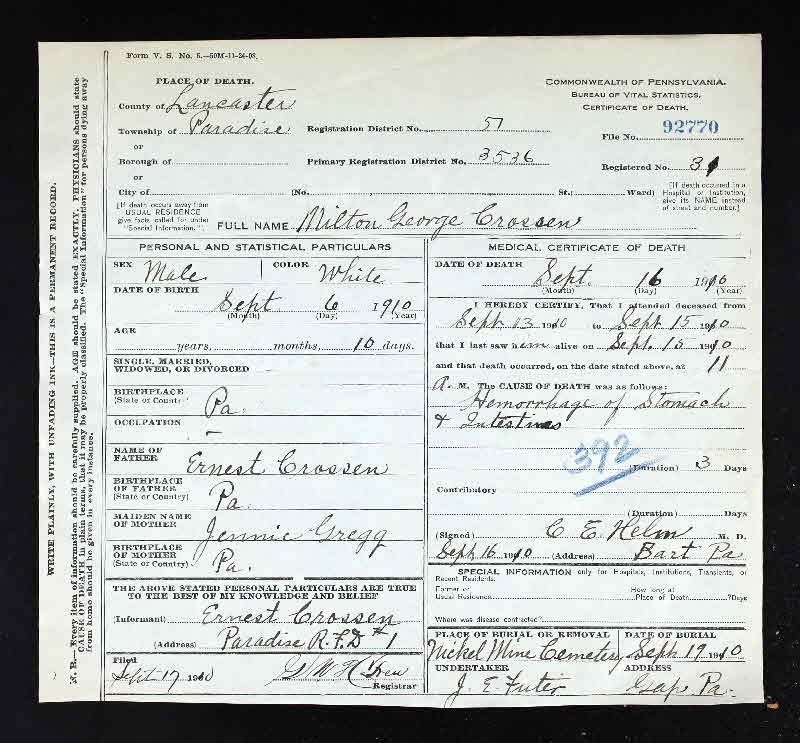 Form V. S. No. 5.—50M-11-24-08.
PLACE OF DEATH.
County of Lancaster
Township of Paradise
or
Borough of
or
City of (No. St.; Ward)
Registration District No. 51
Primary Registration District No. 3536
COMMONWEALTH OF PENNSYLVANIA.
BUREAU OF VITAL STATISTICS.
CERTIFICATE OF DEATH.
File No. 92770
Registered No. 31
[If death occurred in a Hospital or Institution, give its NAME instead of street and number.]
[If death occurs away from USUAL RESIDENCE give facts called for under "Special Information."]
FULL NAME Milton George Crossen
PERSONAL AND STATISTICAL PARTICULARS
SEX Male
COLOR White
DATE OF BIRTH
Sept 6 1910
(Month) (Day) (Year)
AGE
years, months, 10 days.
SINGLE, MARRIED,
WIDOWED, OR DIVORCED
BIRTHPLACE
(State or Country) Pa.
OCCUPATION –
NAME OF
FATHER Ernest Crossen
BIRTHPLACE
OF FATHER
(State or Country) Pa.
MAIDEN NAME
OF MOTHER Jennie Gregg
BIRTHPLACE
OF MOTHER
(State or Country) Pa.
THE ABOVE STATED PERSONAL PARTICULARS ARE TRUE
TO THE BEST OF MY KNOWLEDGE AND BELIEF
(Informant) Ernest Crossen
(Address) Paradise R.F.D #1
Filed
Sept 17 1910
Registrar
MEDICAL CERTIFICATE OF DEATH
DATE OF DEATH
Sept. 16 1910
(Month) (Day) (Year)
I HEREBY CERTIFY, That I attended deceased from
Sept 13 1910 to Sept 15 1910
that I last saw him alive on Sept. 15 1910
and that death occurred, on the date stated above, at 11
A. M. The CAUSE OF DEATH was as follows:
Hemorrhage of Stomach
& Intestines
392
(Duration) 3 Days
Contributory
(Duration) Days
(Signed) C E Helm M. D.
Sept 16 1910 (Address) Bart Pa
SPECIAL INFORMATION only for Hospitals, Institutions, Transients, or
Recent Residents.
Former or
Usual Residence
How long at
Place of Death ?Days
Where was disease contracted?
PLACE OF BURIAL OR REMOVAL
Nickel Mine Cemetery
DATE OF BURIAL
Sept 19 1910
UNDERTAKER
J. E. Futer
ADDRESS
Gap Pa.
WRITE PLAINLY, WITH UNFADING INK—THIS IS A PERMANENT RECORD.
N. B.—Every item of information should be carefully supplied. AGE should be stated EXACTLY. PHYSICIANS should state
CAUSE OF DEATH in plain terms, that it may be properly classified. The "Special Information" for persons dying away
from home should be given in every instance.